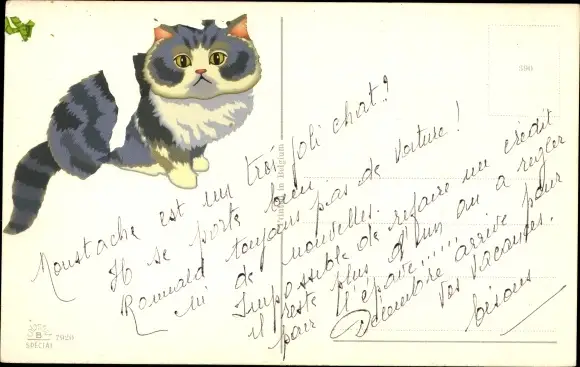 Moustache est un trois joli chat !?
Il se porte bien
Romuald toujours pas de voiture !
ni de nouvelles.
Impossible de refaire un crédit
il reste plus d'un an a regler
pour l'épave !!!!!
Décembre arrive pour
vos vacances.
bisous
Printed in Belgium
500
B
SPECIAL 7928